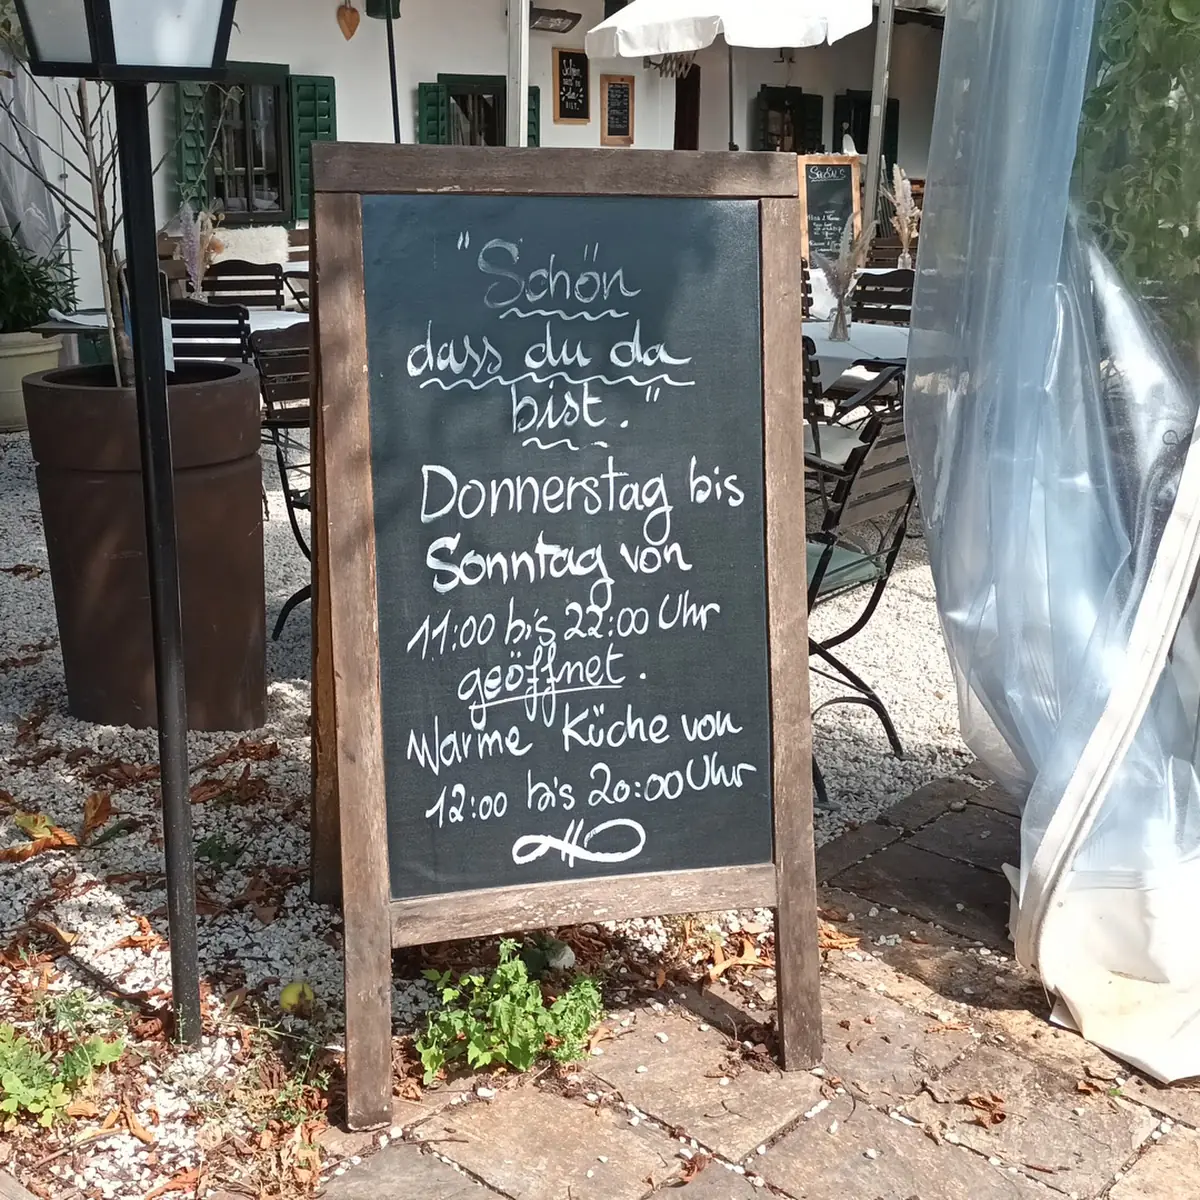 "Schön
dass du da
bist."
Donnerstag bis
Sonntag von
11:00 bis 22:00 Uhr
geöffnet.
Warme Küche von
12:00 bis 20:00 Uhr
Schön,
dass du
da
bist.